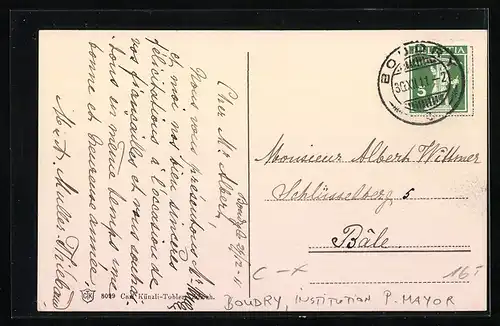 Boudry 30/12-11
Cher Mr Albert!
Nous vous présentons Mr Wille
et moi nos bien sincères
félicitations à l'occasion de
vos fiançailles et vous souhai-
tons en même temps une
bonne et heureuse année.
Mr &
BOUDRY
30.XII.11 - 2
HELVETIA
5
Monsieur Albert Wittmer
Schlüsselberg 5
Bâle.
C - X
16.-
8029 Carl Künzli-Tobler, Zürich.
BOUDRY, INSTITUTION P. MAYOR